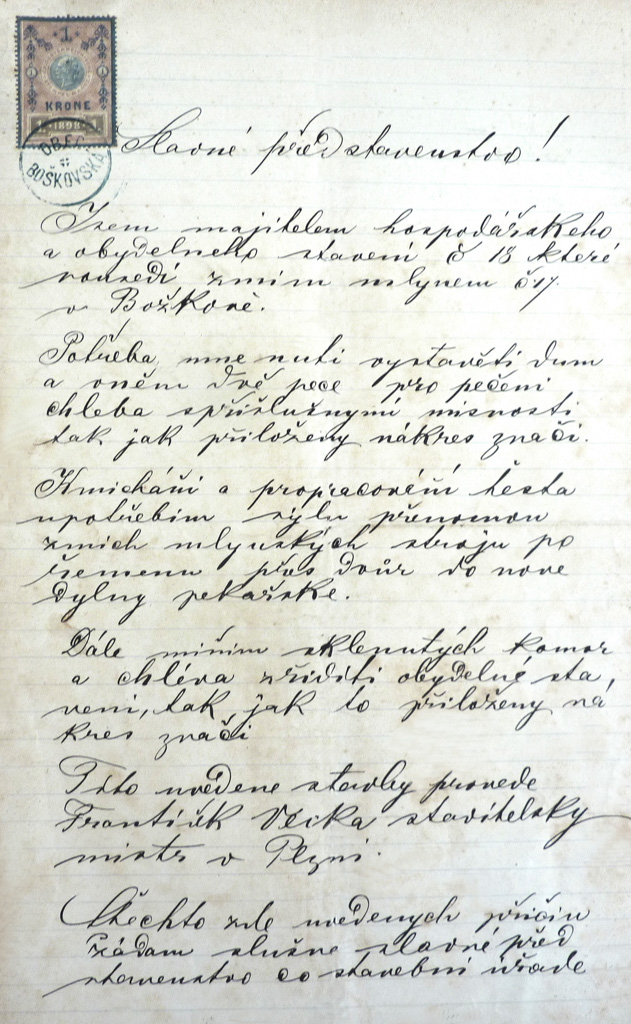 1
KRONE
1 1898 1
OBEC
BOŠKOVSKÁ
Slavné představenstvo!
Jsem majitelem hospodářského
a obydelneho stavení č 18 které
sousedí zmím mlynem č17.
v Božkově.
Potřeba mne nuti vystavěti dum
a vněm dvě pece pro pečeni
chleba spříslušnymi misnosti
tak jak přiloženy nákres značí.
Kmicháñi a propracovéñi těsta
upotřebim sýlu přenomou
zmich mlynských stroju po
řemenu přes dvůr do nove
dylny pekařske.
Dále miñim sklenutých komor
a chléva zříditi obydelné sta,
veni, tak jak to přiloženy ná
kres značí
Tito uvédene stavby provede
František Věcka stavitelsky
mistr v Plzni.
Stěchto zde uvedenych přičin
žádam slušne slavné před
stavenstvo co stavebni úřade